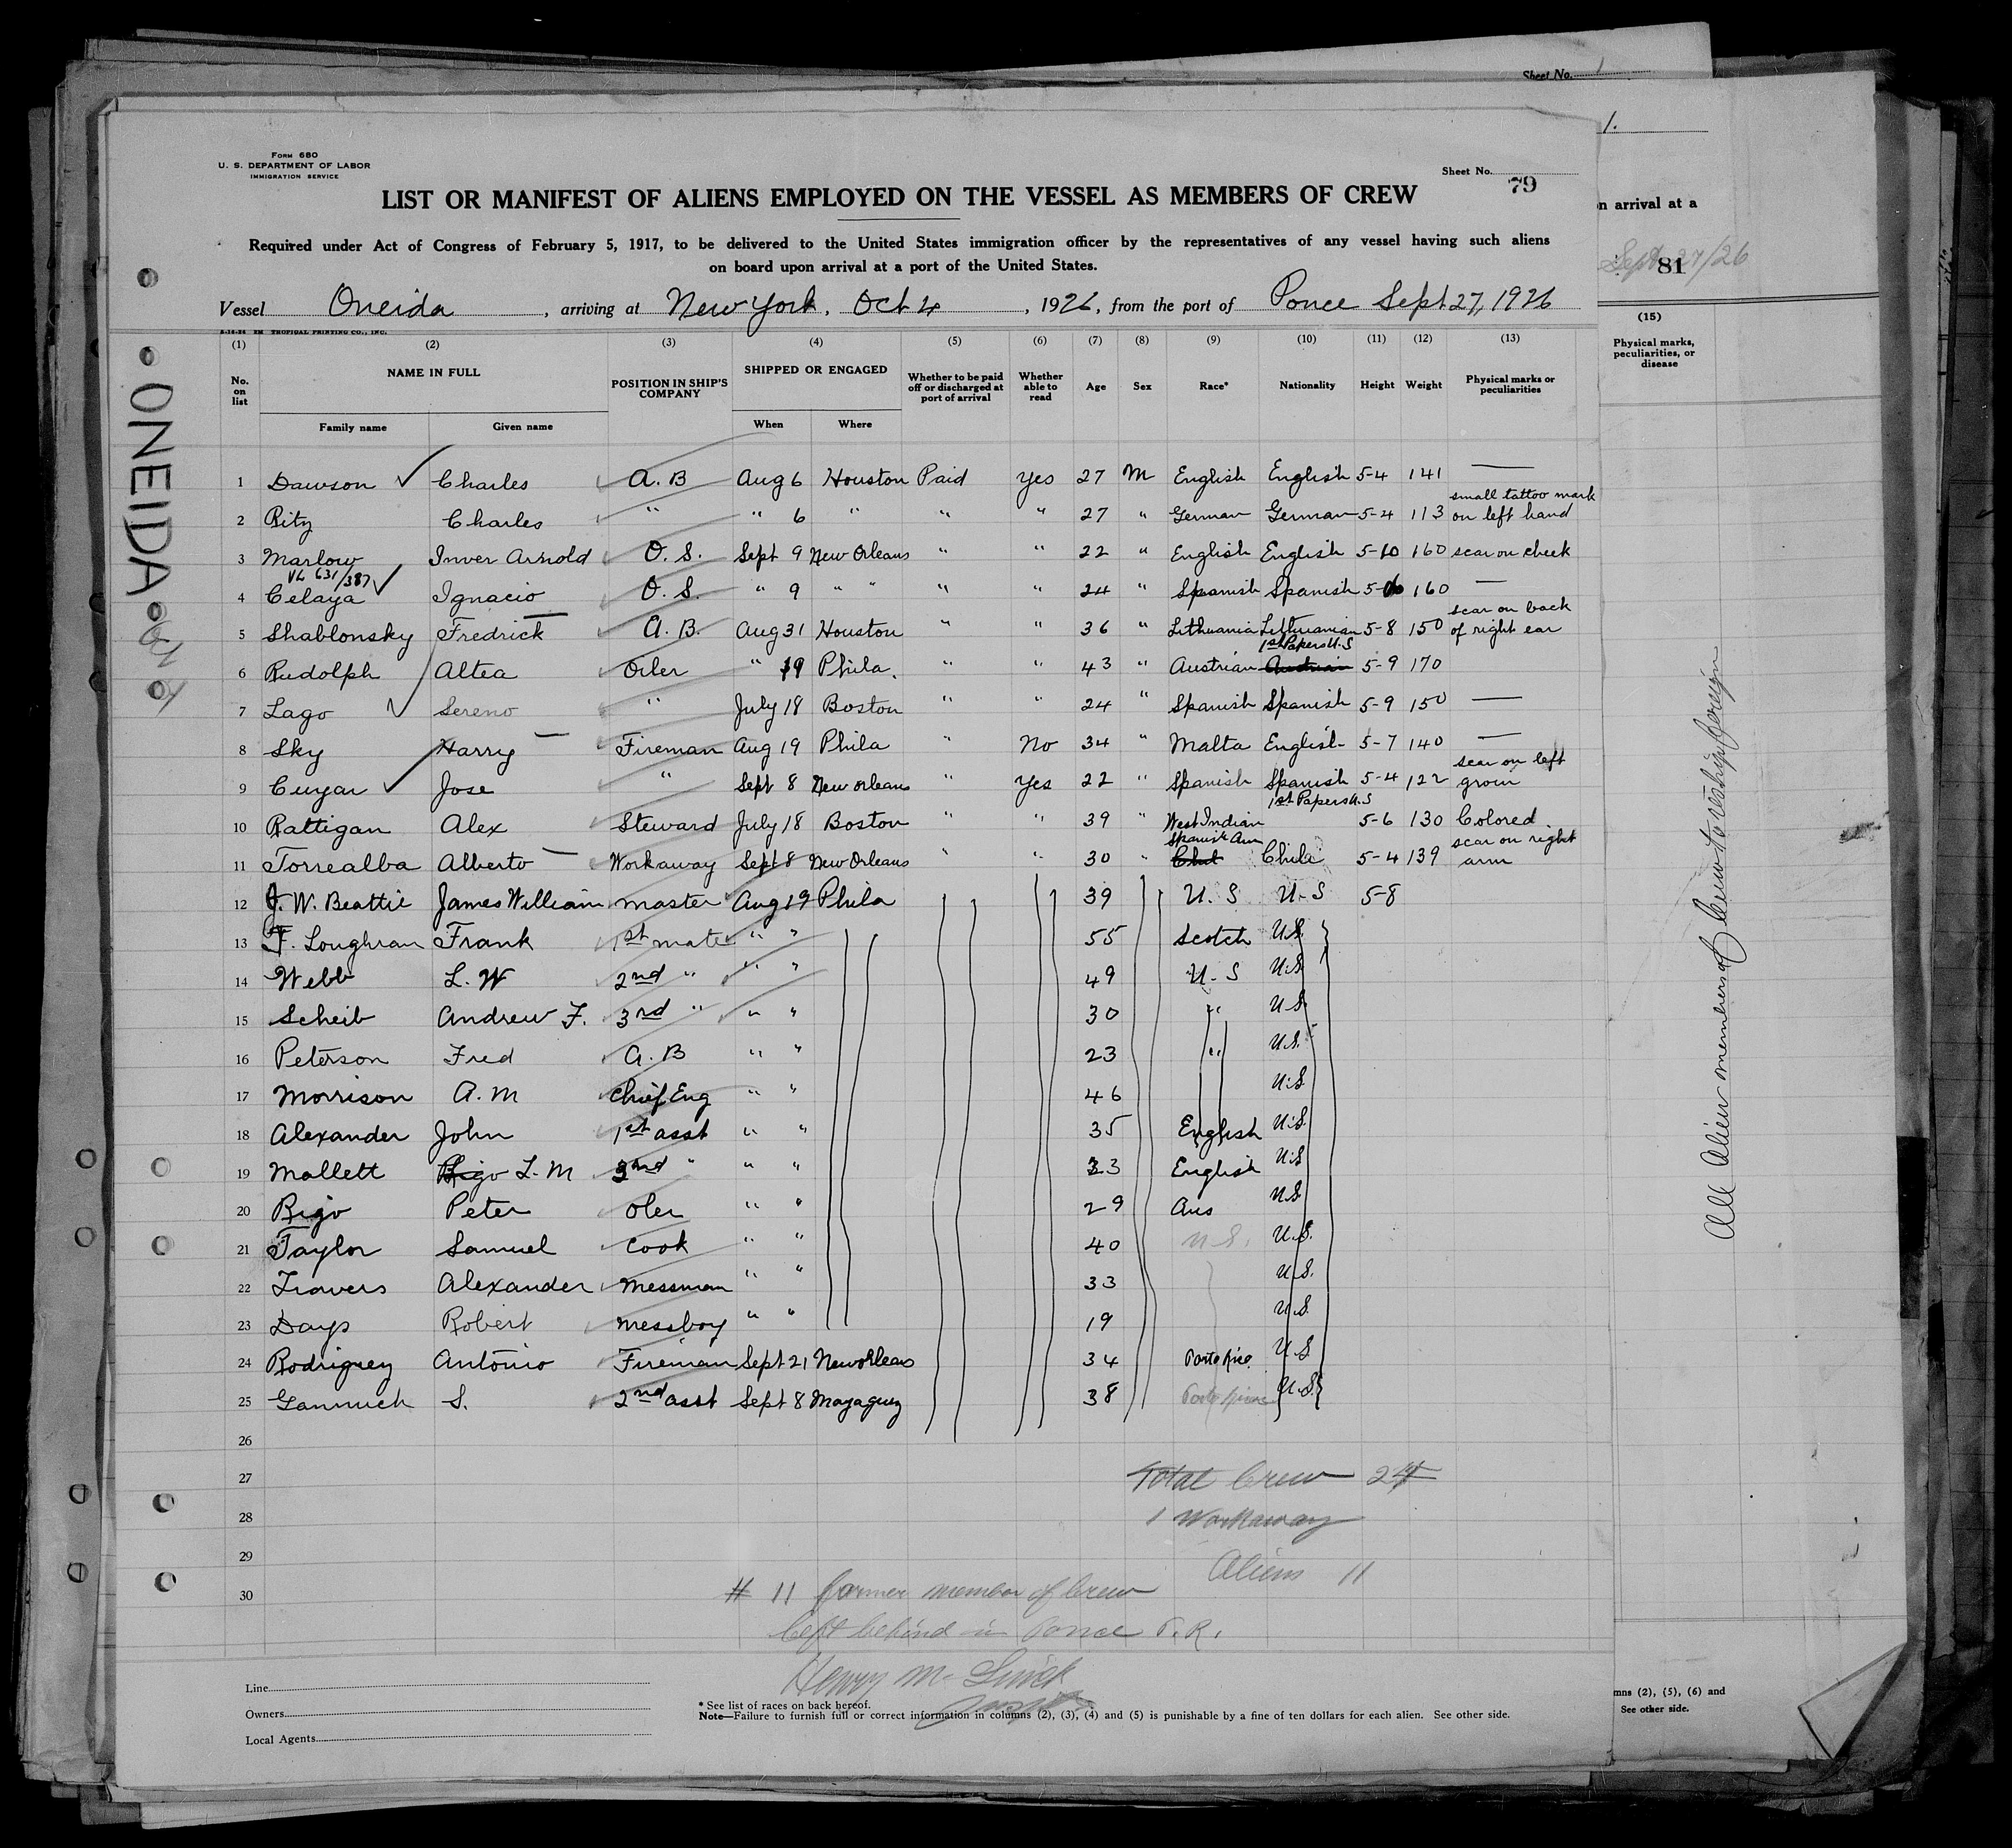 Sheet No.
1.
FORM 680
U. S. DEPARTMENT OF LABOR
IMMIGRATION SERVICE
Sheet No. 79
LIST OR MANIFEST OF ALIENS EMPLOYED ON THE VESSEL AS MEMBERS OF CREW
Required under Act of Congress of February 5, 1917, to be delivered to the United States immigration officer by the representatives of any vessel having such aliens
on board upon arrival at a port of the United States.
n arrival at a
Sept 27/26
81
Vessel Oneida, arriving at New York, Oct 4, 1926, from the port of Ponce Sept 27, 1926
TROPICAL PRINTING CO., INC.
ONEIDA
(1) (2) (3) (4) (5) (6) (7) (8) (9) (10) (11) (12) (13)
No. on list NAME IN FULL POSITION IN SHIP'S COMPANY SHIPPED OR ENGAGED Whether to be paid off or discharged at port of arrival Whether able to read Age Sex Race* Nationality Height Weight Physical marks or peculiarities
Family name Given name When Where
(15)
Physical marks, peculiarities, or disease
1 Dawson Charles A. B Aug 6 Houston Paid Yes 27 M English English 5-4 141 —
2 Ritz Charles " " 6 " " " 27 " German German 5-4 113 small tattoo mark on left hand
3 Marlow Inver Arnold O. S. Sept 9 New Orleans " " 22 " English English 5-10 160 scar on cheek
631/387
4 Celaya Ignacio O. S. " 9 " " " " 24 " Spanish Spanish 5-6 160 —
5 Shablonsky Fredrick A. B. Aug 31 Houston " " 36 " Lithuania Lithuanian 5-8 150 scar on back of right ear
1st Papers U.S
6 Rudolph Altea Oiler " 19 Phila. " " 43 " Austrian Austrian 5-9 170
7 Lago Sereno " July 18 Boston " " 24 " Spanish Spanish 5-9 150 —
8 Sky Harry Fireman Aug 19 Phila " No 34 " Malta English 5-7 140 —
9 Cuyar Jose " Sept 8 New Orleans " Yes 22 " Spanish Spanish 5-4 122 scar on left groin
1st Papers U.S
10 Rattigan Alex Steward July 18 Boston " " 39 " West Indian 5-6 130 Colored
11 Torrealba Alberto Workaway Sept 8 New Orleans " " 30 " Spanish Am Chile 5-4 139 scar on right arm
12 J. W. Beattie James William master Aug 19 Phila 39 U. S U-S 5-8
13 F. Loughran Frank 1st mate " " 55 Scotch U.S.
14 Webb L. W 2nd " " " 49 U-S U.S
15 Scheib Andrew F. 3rd " " " 30 " U.S
16 Peterson Fred A. B " " 23 " U.S.
17 Morrison A. M Chief Eng " " 46 U.S
18 Alexander John 1st asst " " 35 English U.S.
19 Mallett L. M 3nd " " " 33 English U.S
20 Rigo Peter oler " " 29 Aus U.S.
21 Taylor Samuel Cook " " 40 U.S. U.S.
22 Travers Alexander Messman " " 33 U.S.
23 Days Robert Messboy " " 19 U.S.
24 Rodriguez Antonio Fireman Sept 21 New Orleans 34 Porto Rico U.S
25 S. 2nd asst Sept 8 Mayaguez 38 Porto Rico U.S
26
27 Total Crew 24
28 1 Workaway
29 Aliens 11
30
# 11 former member of Crew
left behind in Ponce P.R.
Henry M.
Line
Owners
Local Agents
* See list of races on back hereof.
Note—Failure to furnish full or correct information in columns (2), (3), (4) and (5) is punishable by a fine of ten dollars for each alien. See other side.
mns (2), (5), (6) and
See other side.
All Alien memers of Crew to reship foreign